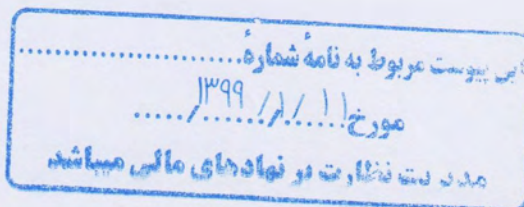 پیوست مربوط به نامهٔ شمارهٔ........................
مورخ ۱۱/۸/۱۳۹۹
مدیریت نظارت بر نهادهای مالی میباشد